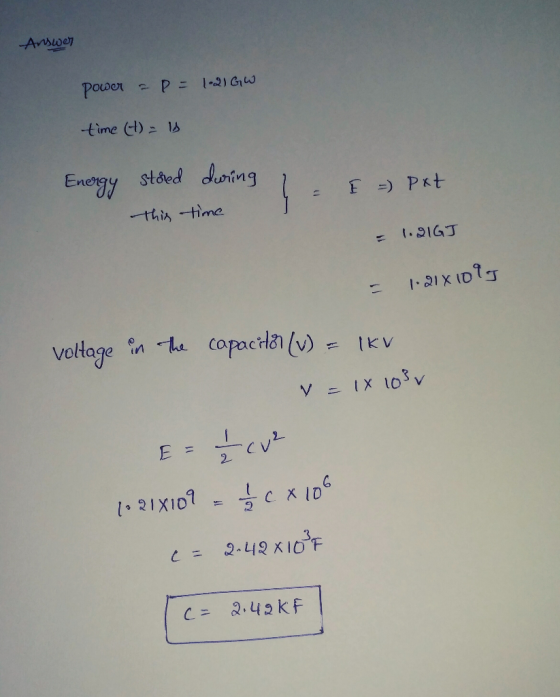 Answer
power = P = 1.21 GW
time (t) = 1s
Energy stored during this time } = E => P×t
= 1.21GJ
= 1.21 × 10⁹ J
Voltage in the capacitor (v) = 1KV
V = 1 × 10³ V
E = 1/2 CV²
1.21×10⁹ = 1/2 C × 10⁶
C = 2.42 × 10³ F
C = 2.42KF